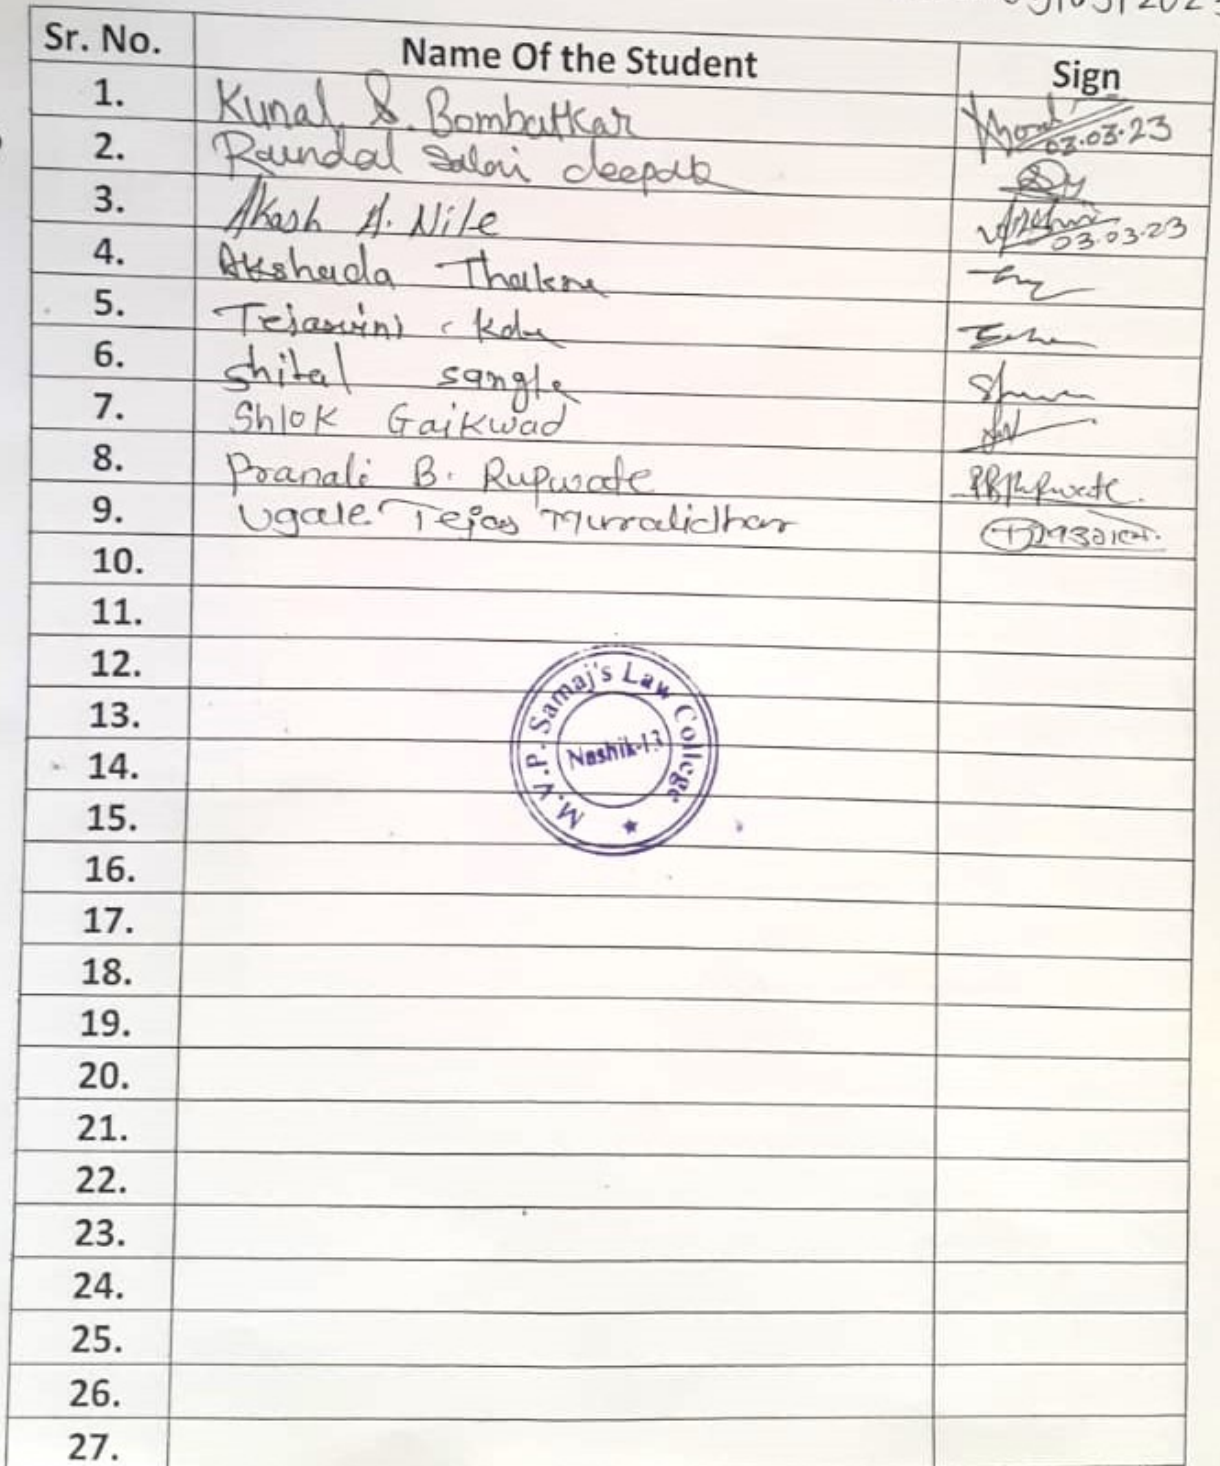 03/03/2023
Sr. No. Name Of the Student Sign
1. Kunal S. Bombatkar 03.03.23
2. Raundal Saloni deepak
3. Akash A. Nile 03.03.23
4. Akshada Thakre
5. Tejaswini
6. Shital sangle
7. Shlok Gaikwad
8. Pranali B. Rupwate PBRupwate.
9. Ugale Tejas Murralidhar
10.
11.
12.
13.
14.
15.
16.
17.
18.
19.
20.
21.
22.
23.
24.
25.
26.
27.
M.V.P. Samaj's Law College
Nashik-13